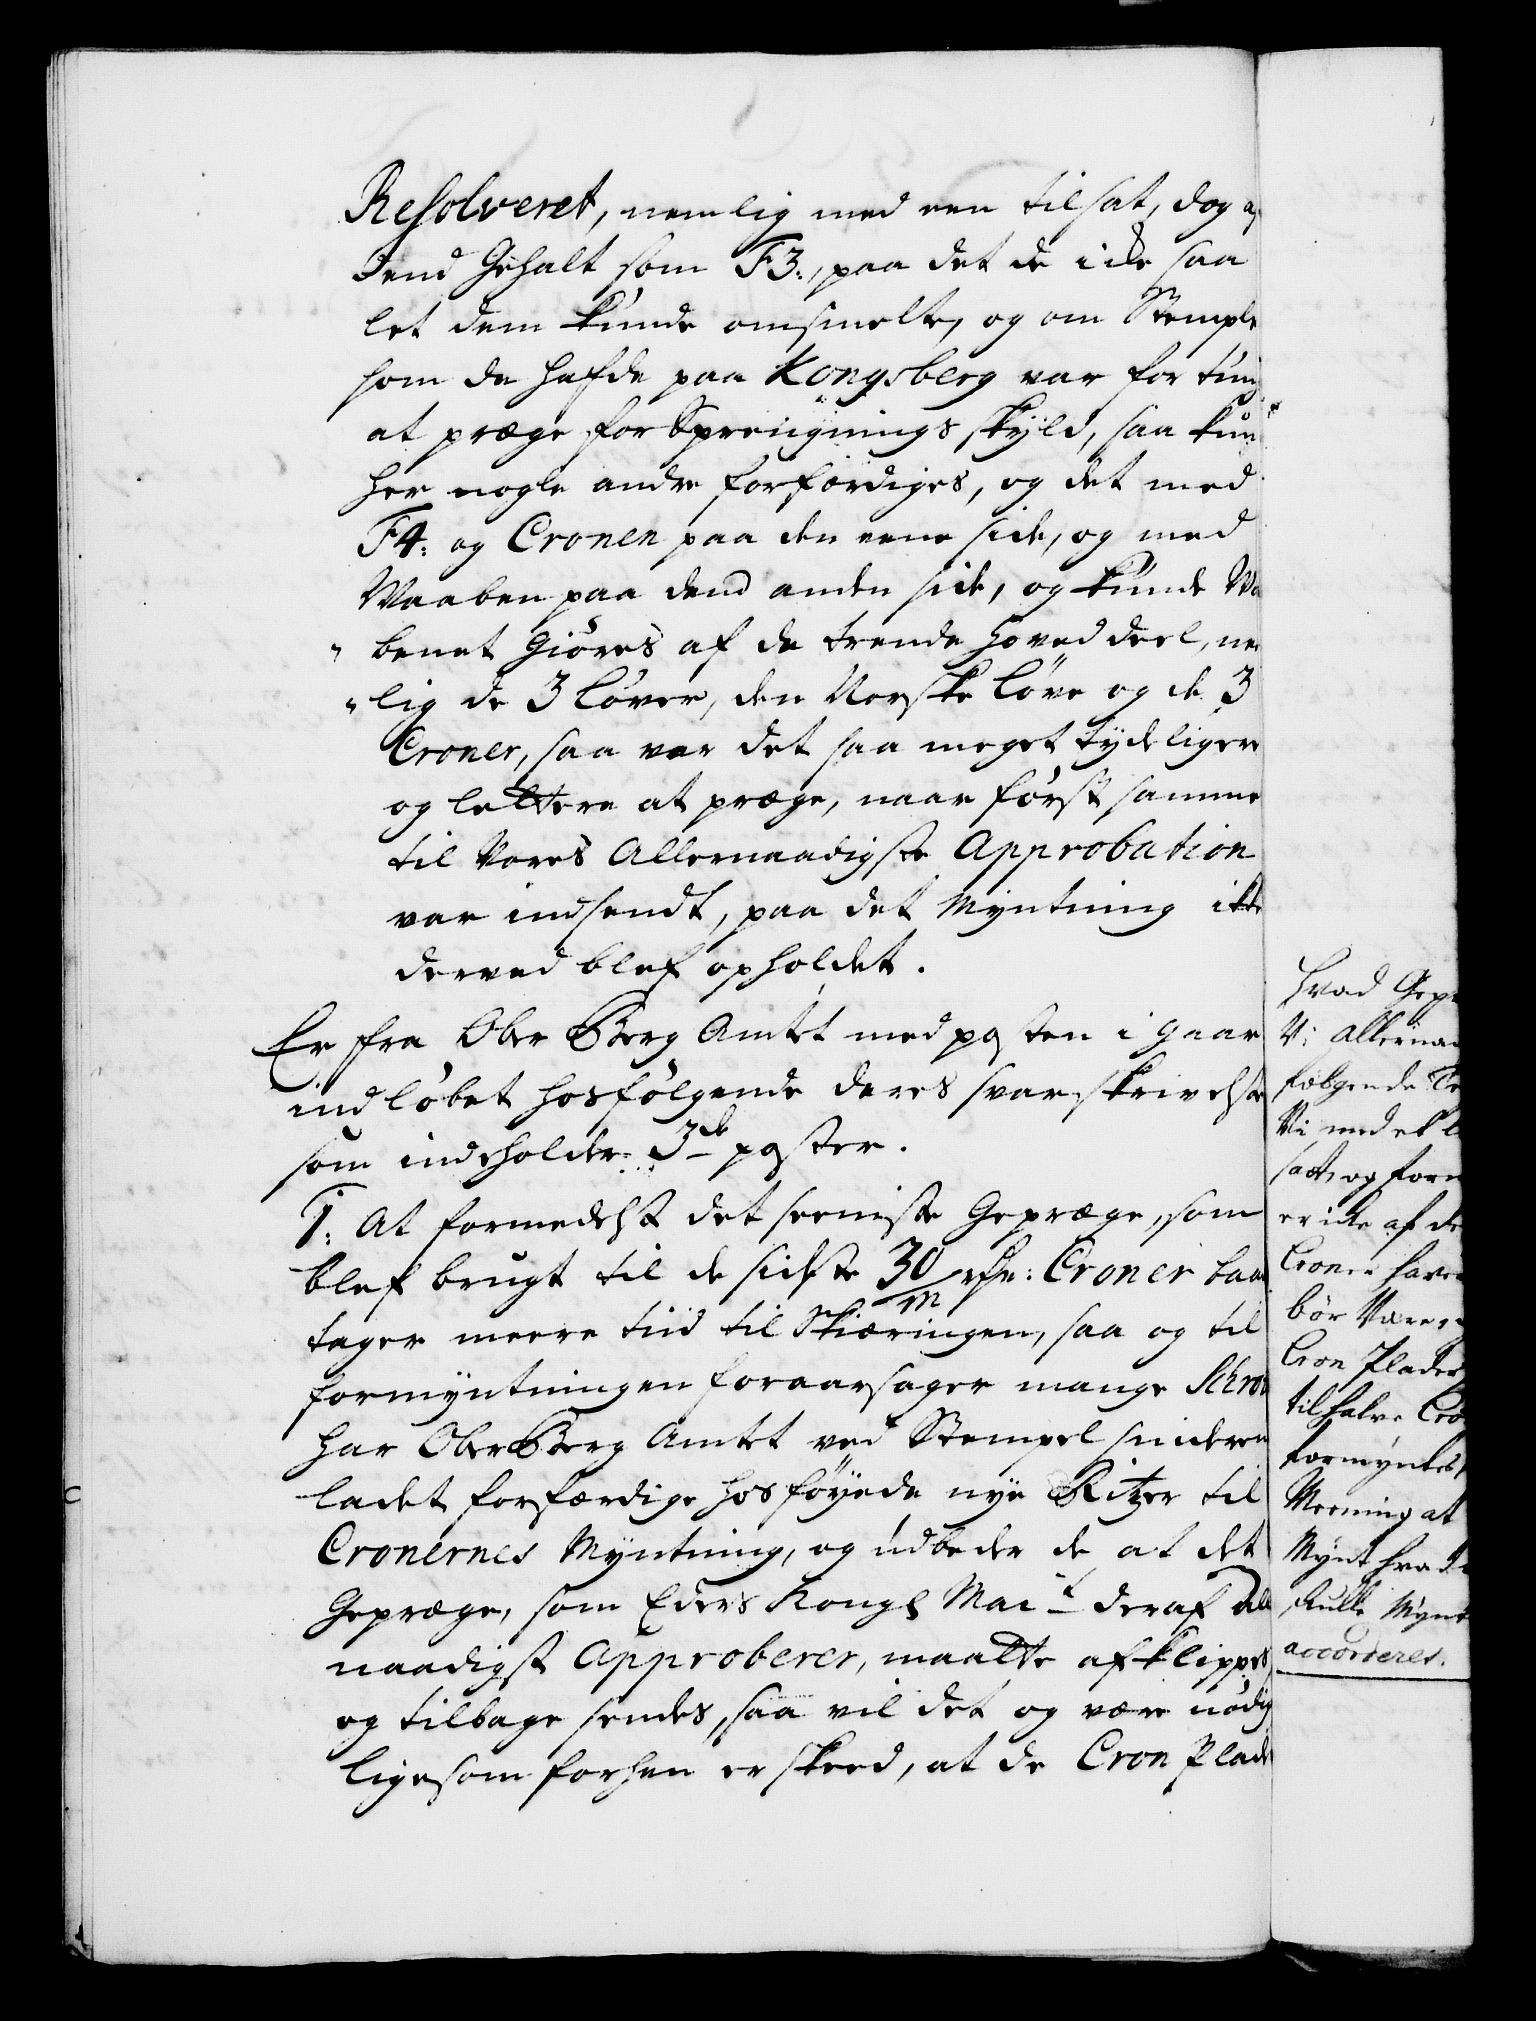 Resolveret, nemlig med een tilsat, dog af
dend Gehalt som F3:, paa det de icke saa
let dem kunde omsmelte, og om Stemple
som de hafde paa Kongsberg var for tung
at præge for Sprengnings skyld, saa kun
her nogle andre forfærdiges, og det med
F4: og Cronen paa den eene side, og med
Waaben paa dend anden side, og kunde Wa
benet giöres af de trende hoved deel, nem
lig de 3 Löver, den Norske Löve og de 3
Croner, saa var det saa meget tydeligere
og lettere at præge, naar först samme
til Vores Allernaadigste Approbation
var indsendt, paa det Myntning ikke
derved blef opholdet.
Er fra Ober Berg Amtet med posten i gaar
indlöbet hosfölgende deres svar skrivelse
som indeholder 3de poster.
1: At formedelst det seeniste Gepræge, som
blef brugt til de sidste 30/m Croner baade
tager meere tiid til Skiæringen, saa og til
formyntningen foraarsager mange Schrov
har OberBerg Amtet ved Stempel snideren
ladet forfærdige hosföyede nye Ritzer til
Cronernes Myntning, og udbeder de at det
Gepræge, som Eders Kongl Mait deraf alle
naadigst Approberer, maatte afklippes
og tilbage sendes, saa vil det og være nödig
ligesom forhen er skeed, at de Cron Plade
Hvad Gepr
Vi allernaa
følgende
Vi med et
satt, og for
er icke af de
Cronen have
bör være
Cron Plader
til halve Cro
formyntes,
Meening at
Mynt hva
skulle Mynt
accorderet.